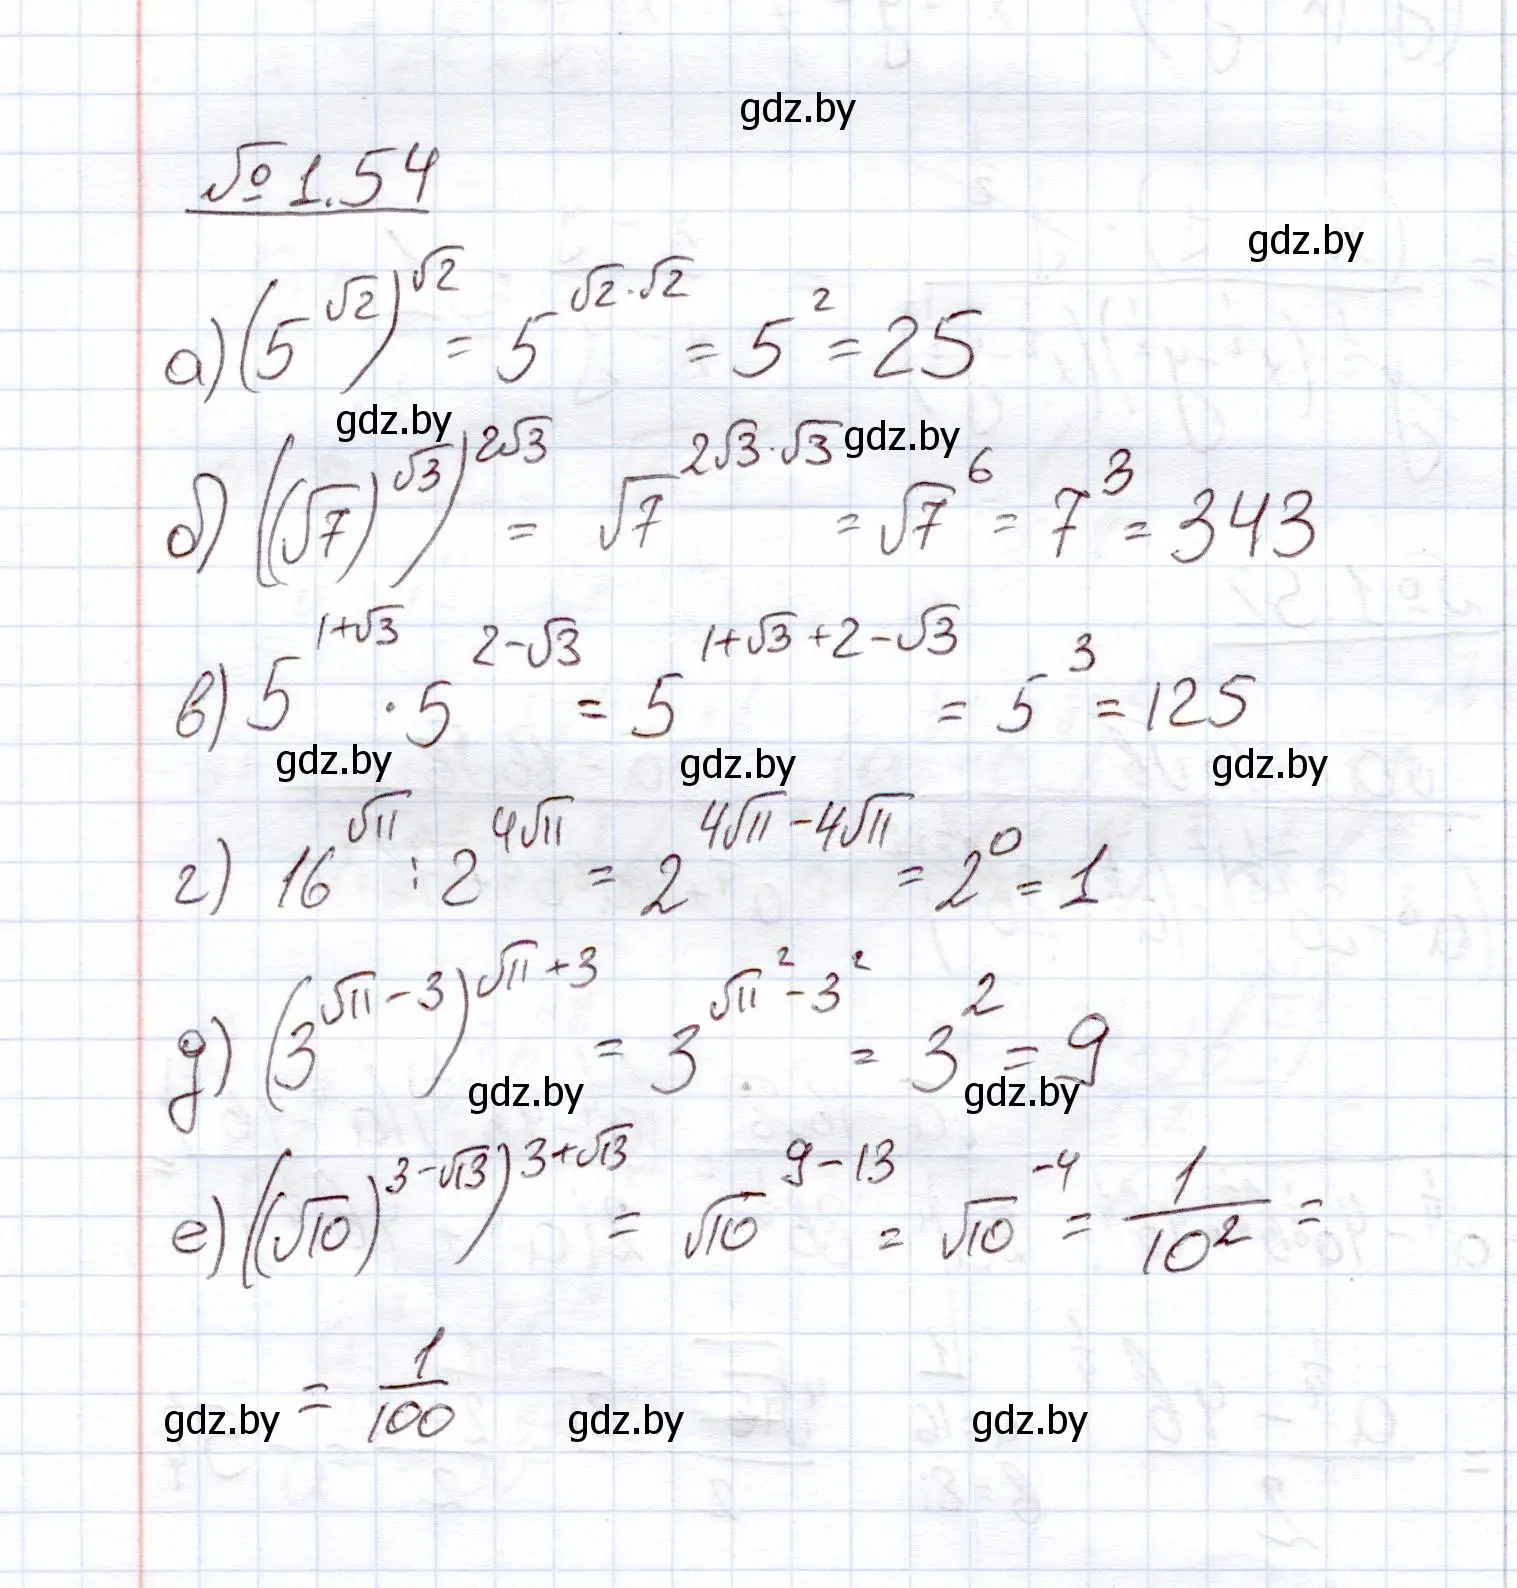 gdz.by
№ 1.54
gdz.by
а) (5^√2)^√2 = 5^(√2·√2) = 5^2 = 25
gdz.by gdz.by
б) ((√7)^√3)^(2√3) = √7^(2√3·√3) = √7^6 = 7^3 = 343
в) 5^(1+√3) · 5^(2-√3) = 5^(1+√3+2-√3) = 5^3 = 125
gdz.by gdz.by gdz.by
г) 16^√11 : 2^(4√11) = 2^(4√11-4√11) = 2^0 = 1
д) (3^(√11-3))^(√11+3) = 3^(√11^2-3^2) = 3^2 = 9
gdz.by gdz.by
е) ((√10)^(3-√13))^(3+√13) = √10^(9-13) = √10^-4 = 1/10^2 =
= 1/100
gdz.by gdz.by gdz.by